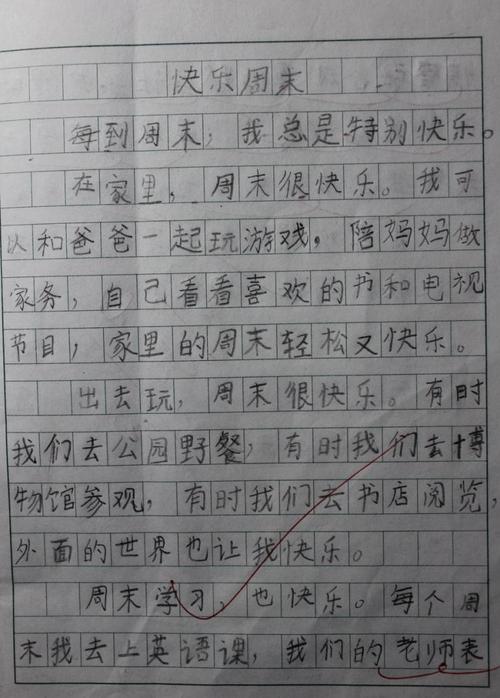 快乐周末
每到周末，我总是特别快乐。
在家里，周末很快乐。我可
以和爸爸一起玩游戏，陪妈妈做
家务，自己看看喜欢的书和电视
节目，家里的周末轻松又快乐。
出去玩，周末很快乐。有时
我们去公园野餐，有时我们去博
物馆参观，有时我们去书店阅览，
外面的世界也让我快乐。
周末学习，也快乐。每个周
末我去上英语课，我们的老师表